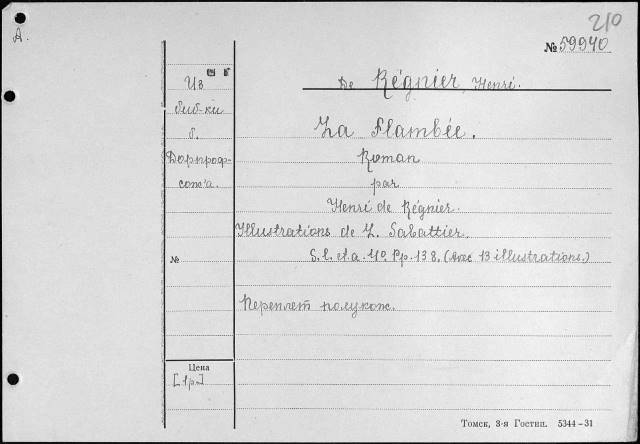 210
А.
№ 59940
Из
De Régnier, Henri.
биб-ки
б.
La Flambée.
Дорпроф-
Roman
сож'а.
par
Henri de Régnier.
Illustrations de L. Sabattier.
№
S. l. et a. 4º. Pp. 138. (Avec 13 illustrations.)
Переплет полукож.
Цена
[1р.]
Томск, 3-я Гостип. 5344-31